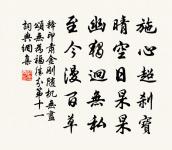 施心超剎寶
晴空日杲杲
幽獨迴無私
至今漫百草
釋印肅金剛隨機無盡
頌無為福勝分第十一
詞典網集